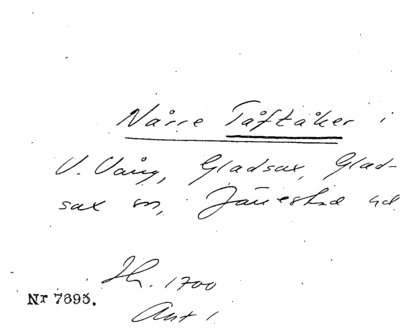 Nårre Tåftåker i
V. Vång, Gladsax, Glad-
sax sn, Järrestad hd
Jh. 1700
Nr 7695.
Akt 1.